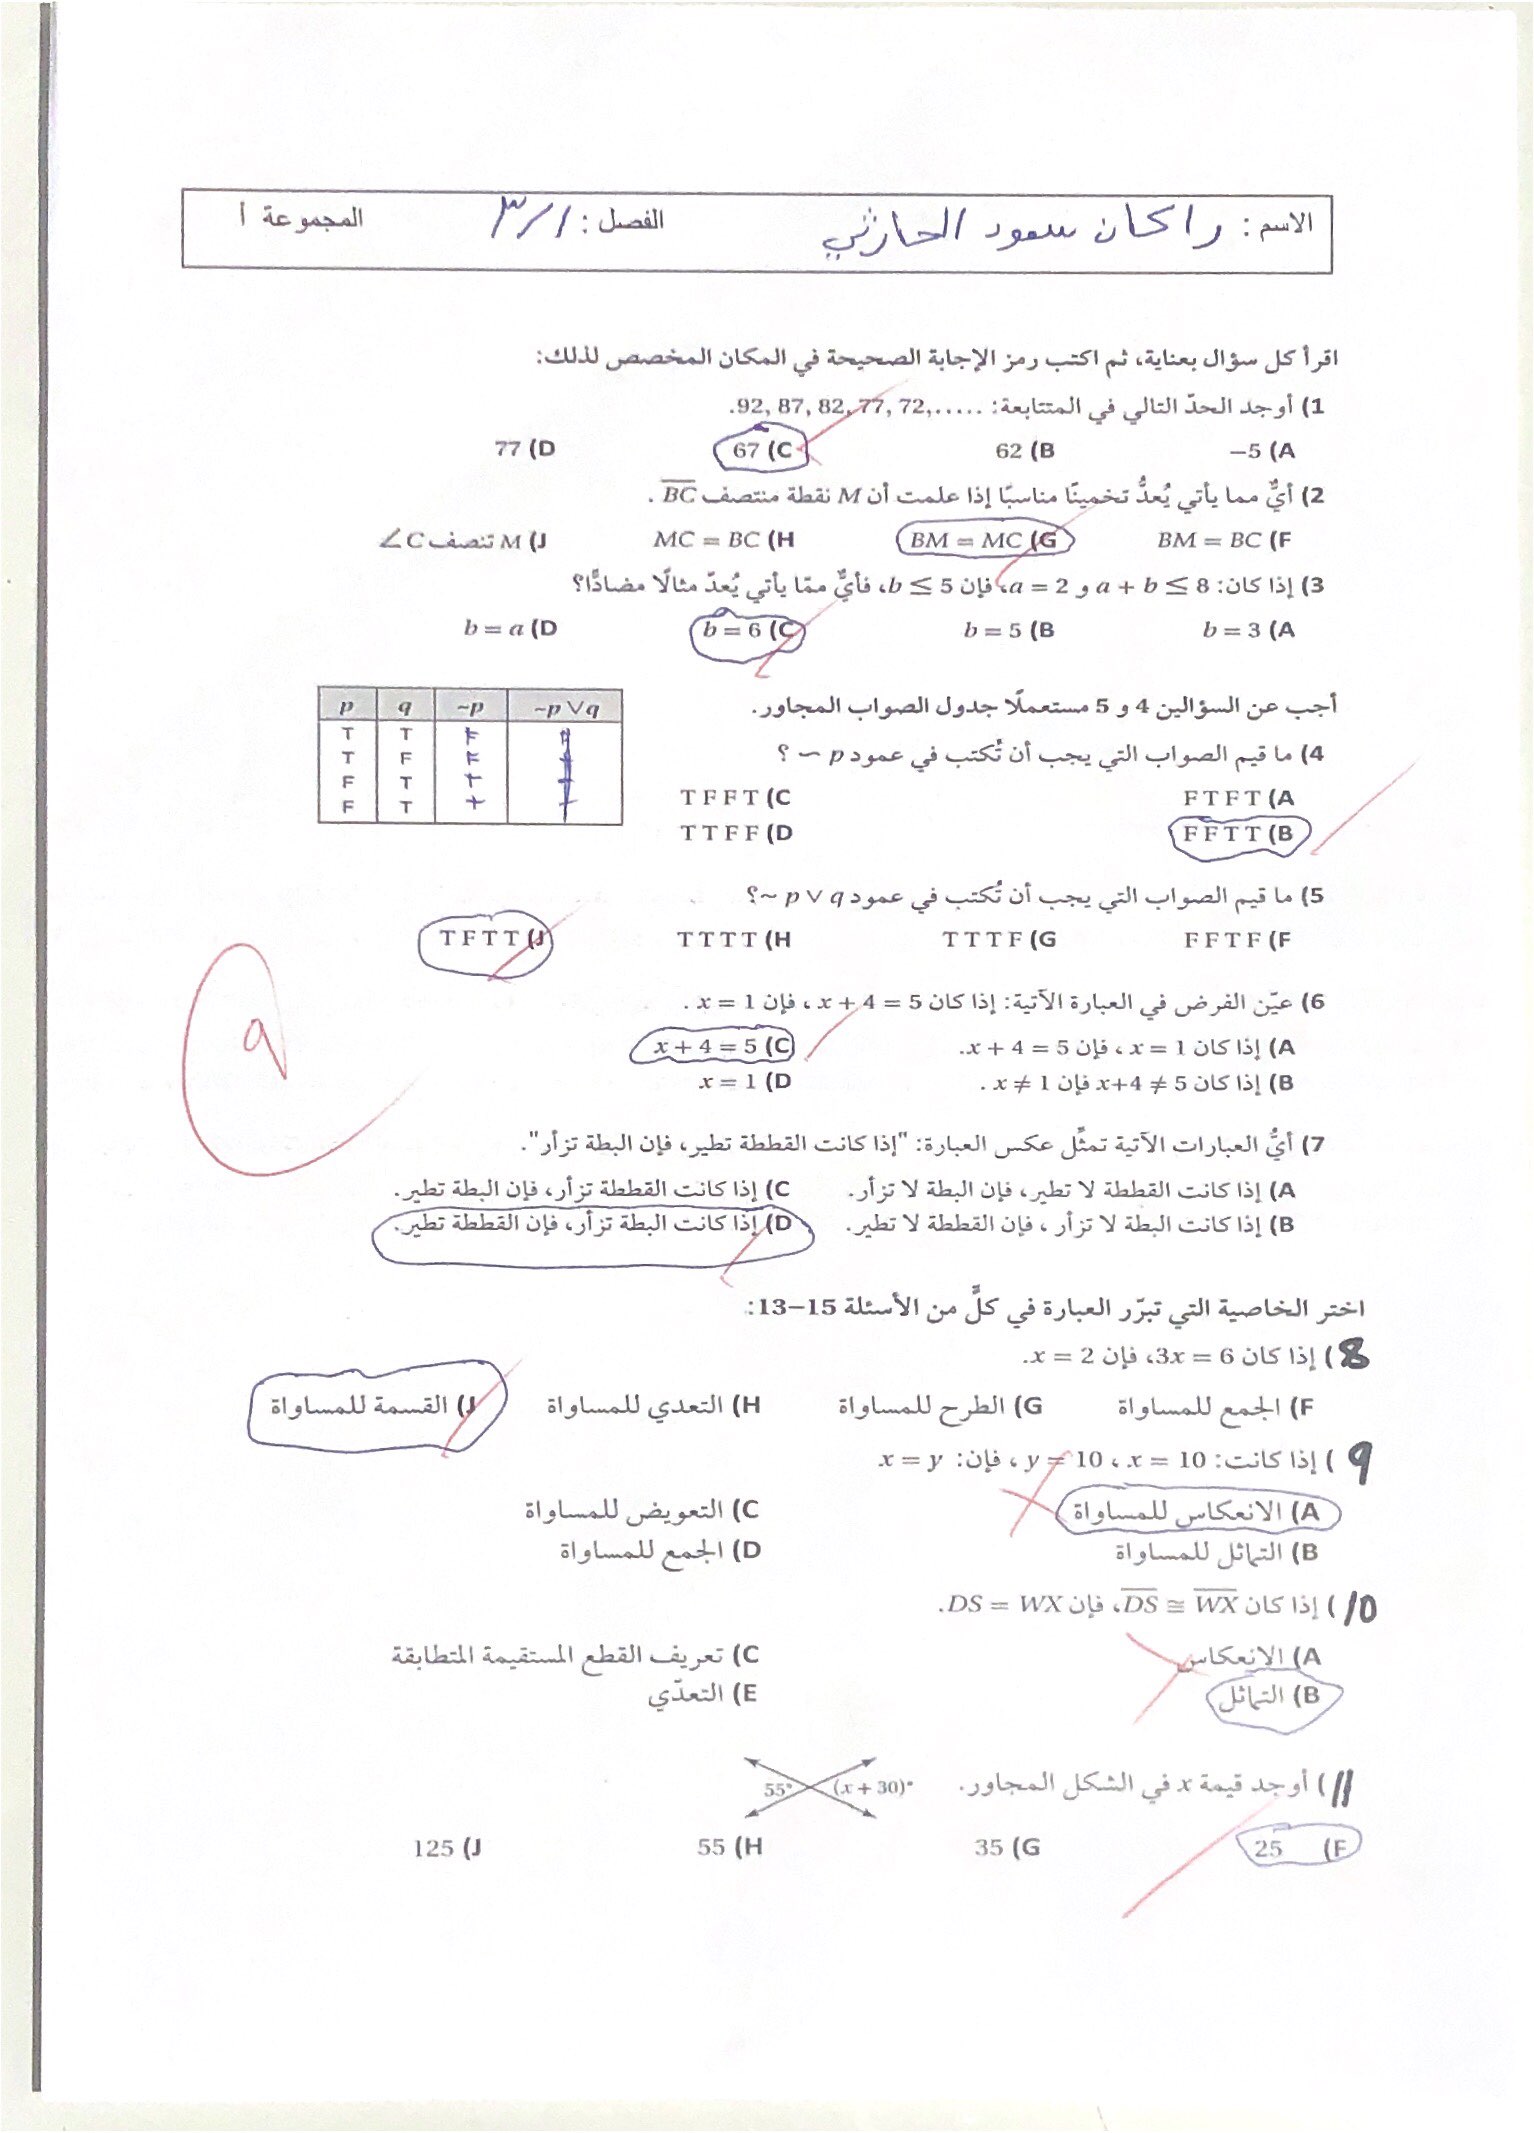 الاسم: راكان سعود الحارثي الفصل: ٣/١ المجموعة أ
اقرأ كل سؤال بعناية، ثم اكتب رمز الإجابة الصحيحة في المكان المخصص لذلك:
1) أوجد الحدّ التالي في المتتابعة: .92, 87, 82, 77, 72,.....
A) −5 B) 62 C) 67 D) 77
2) أيٌّ مما يأتي يُعدُّ تخمينًا مناسبًا إذا علمت أن M نقطة منتصف BC .
F) BM = BC G) BM = MC H) MC = BC J) M تنصف ∠C
3) إذا كان: a + b ≤ 8 و a = 2، فإن b ≤ 5، فأيٌّ ممّا يأتي يُعدّ مثالًا مضادًّا؟
A) b = 3 B) b = 5 C) b = 6 D) b = a
أجب عن السؤالين 4 و 5 مستعملًا جدول الصواب المجاور.
p q ~p ~p ∨ q
T T F
T F F
F T T
F T T
4) ما قيم الصواب التي يجب أن تُكتب في عمود ~ p ؟
A) F T F T C) T F F T
B) F F T T D) T T F F
5) ما قيم الصواب التي يجب أن تُكتب في عمود ~ p ∨ q؟
F) F F T F G) T T T F H) T T T T J) T F T T
6) عيّن الفرض في العبارة الآتية: إذا كان x + 4 = 5 ، فإن x = 1 .
A) إذا كان x = 1 ، فإن x + 4 = 5. C) x + 4 = 5
B) إذا كان x+4 ≠ 5 فإن x ≠ 1 . D) x = 1
7) أيُّ العبارات الآتية تمثِّل عكس العبارة: "إذا كانت القططة تطير، فإن البطة تزأر".
A) إذا كانت القططة لا تطير، فإن البطة لا تزأر. C) إذا كانت القططة تزأر، فإن البطة تطير.
B) إذا كانت البطة لا تزأر ، فإن القططة لا تطير. D) إذا كانت البطة تزأر، فإن القططة تطير.
٩
اختر الخاصية التي تبرّر العبارة في كلٍّ من الأسئلة 15–13:
8) إذا كان 3x = 6، فإن x = 2.
F) الجمع للمساواة G) الطرح للمساواة H) التعدي للمساواة J) القسمة للمساواة
9) إذا كانت: x = 10 ، y = 10 ، فإن: x = y
A) الانعكاس للمساواة C) التعويض للمساواة
B) التماثل للمساواة D) الجمع للمساواة
10) إذا كان DS ≅ WX، فإن DS = WX.
A) الانعكاس C) تعريف القطع المستقيمة المتطابقة
B) التماثل E) التعدّي
11) أوجد قيمة x في الشكل المجاور. 55° (x + 30)°
F) 25 G) 35 H) 55 J) 125